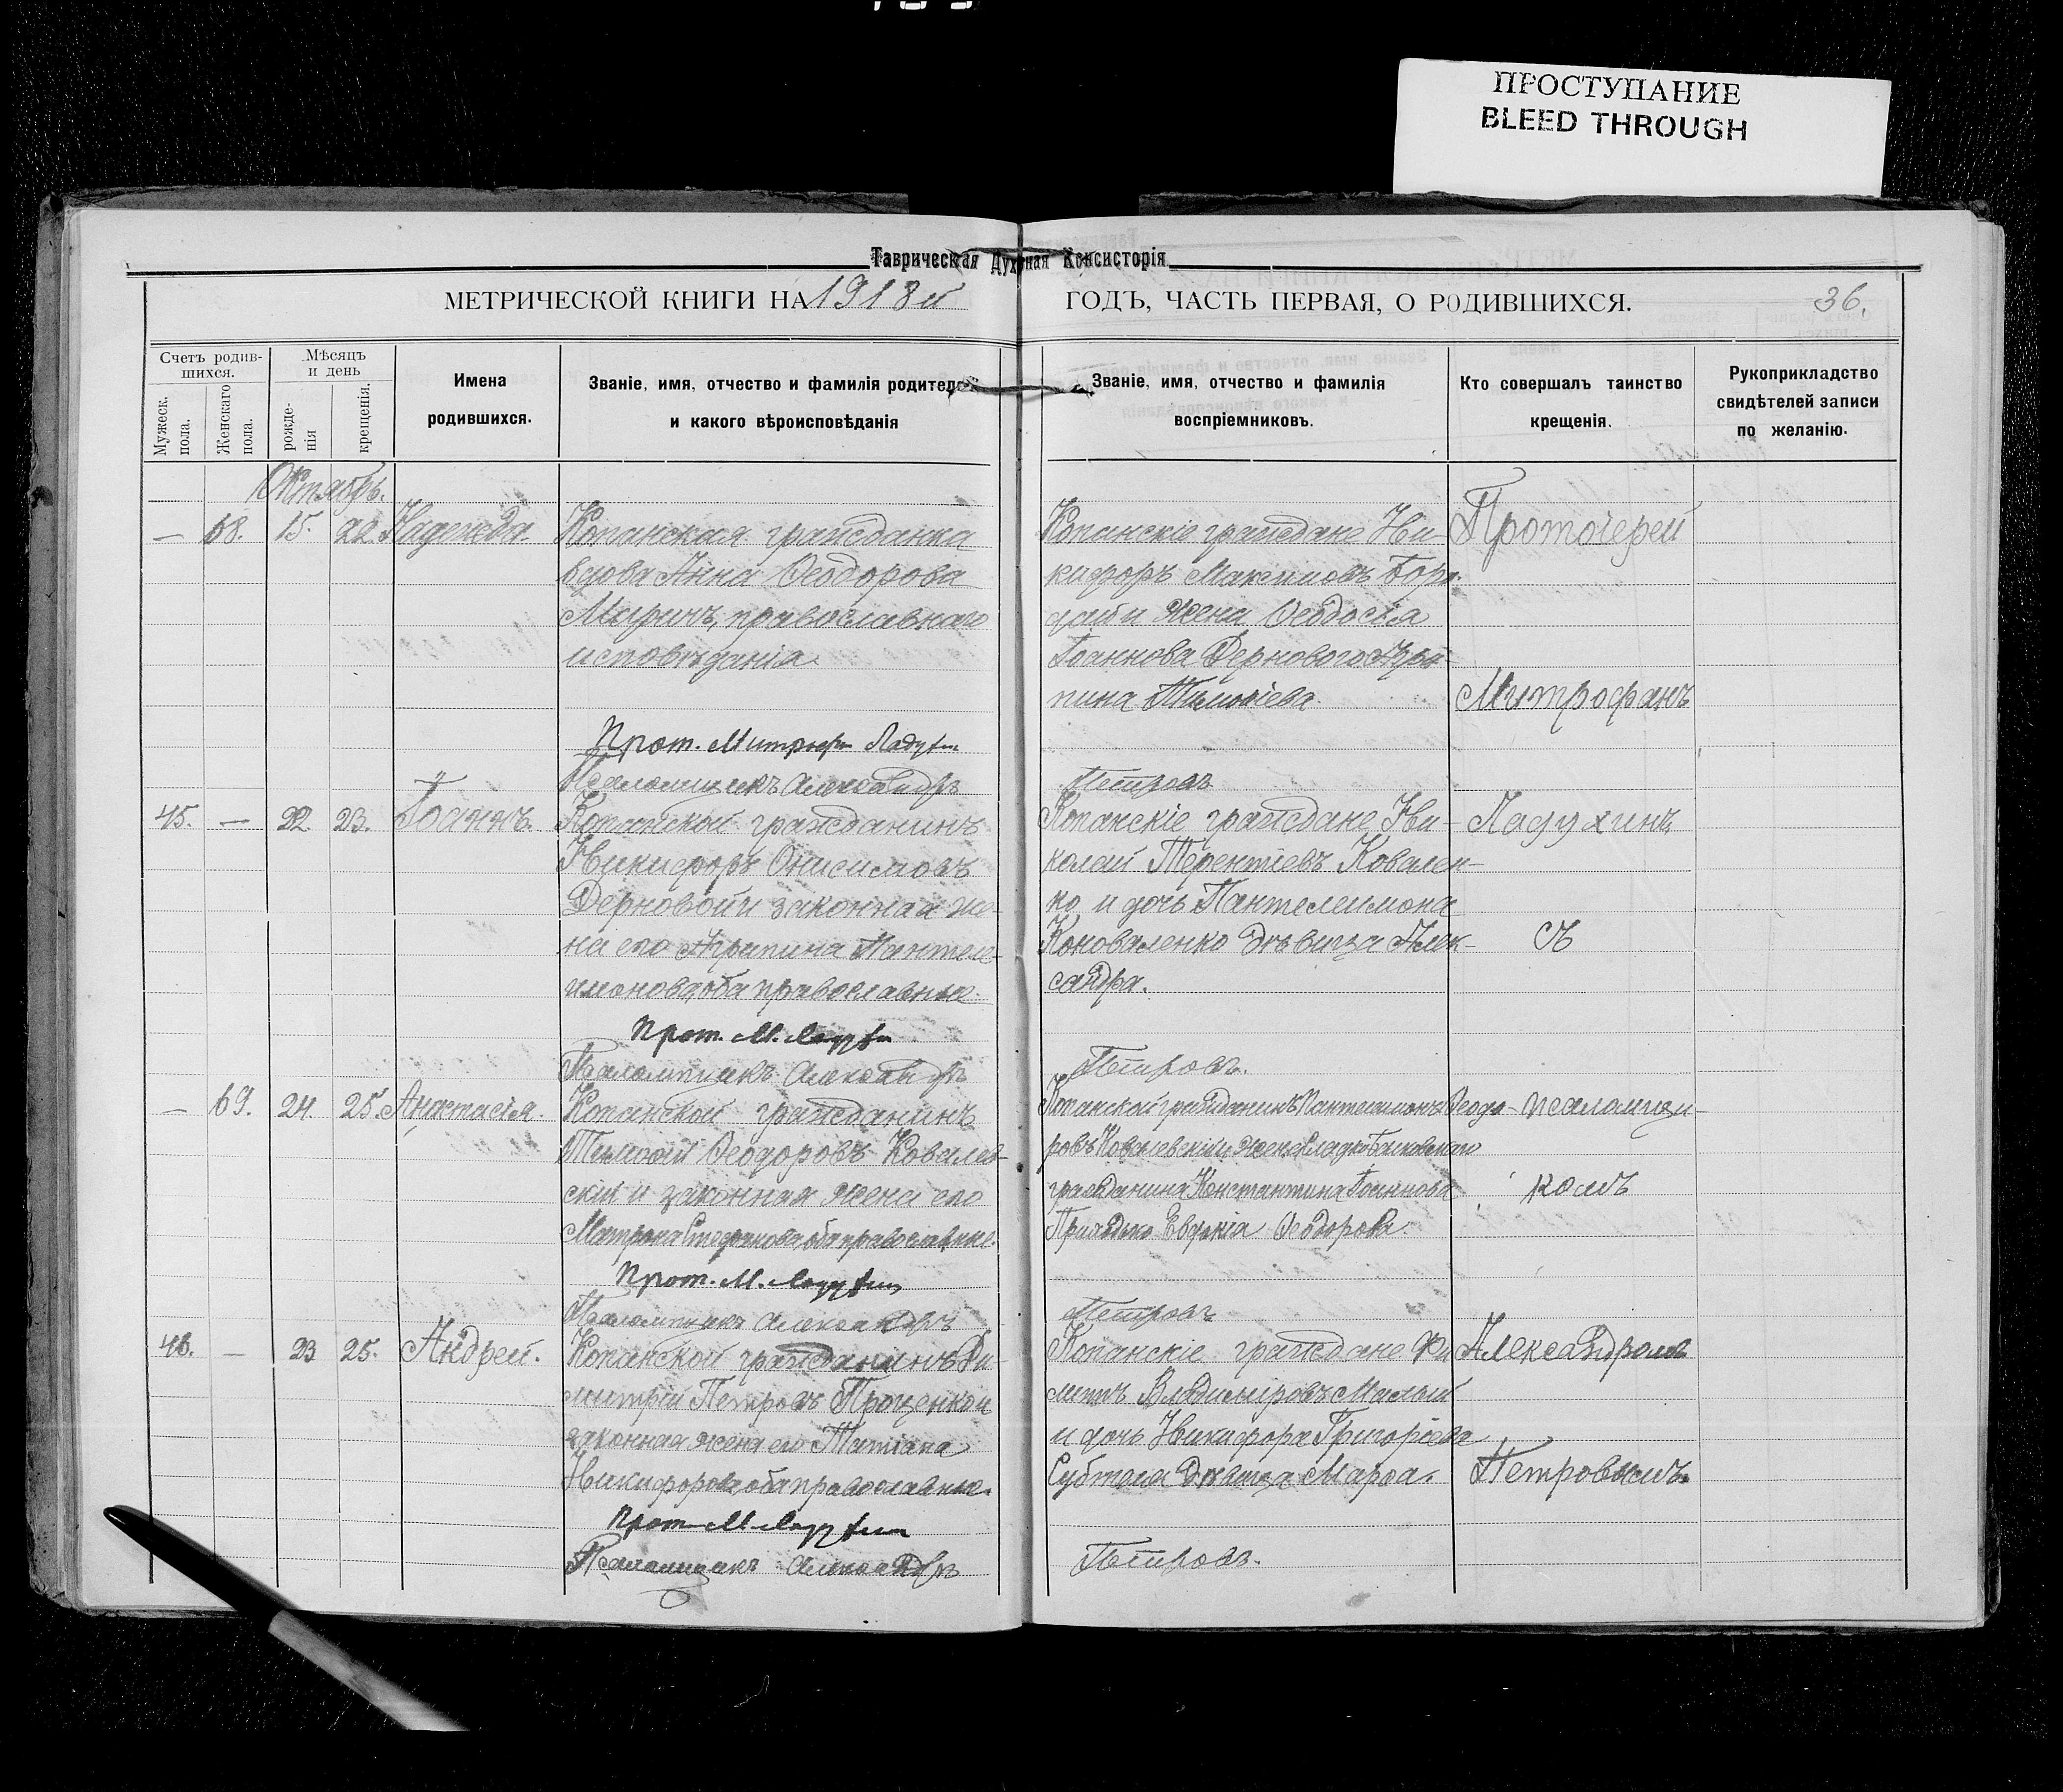 ПРОСТУПАНИЕ
BLEED THROUGH
Таврическая Духовная Консисторія
МЕТРИЧЕСКОЙ КНИГИ НА 1918й ГОДЪ, ЧАСТЬ ПЕРВАЯ, О РОДИВШИХСЯ. 36.
Счетъ родив-
шихся.
Мужеск.
пола.
Женскаго
пола.
Мѣсяцъ
и день
рожде-
нія
крещенія.
Имена
родившихся.
Званіе, имя, отчество и фамилія родителей
и какого вѣроисповѣданія
Званіе, имя, отчество и фамилія
воспріемниковъ.
Кто совершалъ таинство
крещенія.
Рукоприкладство
свидѣтелей записи
по желанію.
Октябрь.
— 68. 15. 22 Надежда.
Копанская гражданка
вдова Анна Ѳеодорова
православнаго
исповѣданія.
Прот. Митроф. Ладухин
Псаломщикъ Александръ
Копанскіе граждане Ни-
кифоръ Максимовъ
жена Ѳеодосія
Іоаннова Дернового Агри-
пина Тимоѳіева.
Петровъ
45. — 22. 23. Іоаннъ.
Копанской гражданинъ
Никифоръ Онисимовъ
Дерновой и законная же-
на его Агрипина Пантеле-
имонова, оба православные.
Прот. М. Ладухин
Псаломщикъ Александръ
Копанскіе граждане Ни-
колай Терентіевъ Ковален-
ко и дочь Пантелеимона
Коноваленко дѣвица Алек-
сандра.
Петровъ.
— 69. 24. 25. Анастасія.
Копанской гражданинъ
Тимоѳій Ѳеодоровъ Ковалев-
скій и законная жена его
Матрона Стефанова, оба православные.
Прот. М. Ладухин
Псаломщикъ Александръ
Копанской гражданинъ Пантелеимонъ Ѳеодо-
ровъ Ковалевскій и жена
гражданина Константина Іоаннова
Евдокія Ѳеодорова.
Петровъ
46. — 23 25. Андрей.
Копанской гражданинъ Ди-
митрій Петровъ Проценко и
законная жена его Татіана
Никифорова оба православные.
Прот. М. Ладухин
Псаломщикъ Александръ
Копанскіе граждане Фи-
липъ Владиміровъ Малый
и дочь Никифора Григоріева
дѣвица Марѳа.
Петровъ.
Протоіерей
Митрофанъ
Ладухинъ
съ
псаломщи-
комъ
Александромъ
Петровымъ.